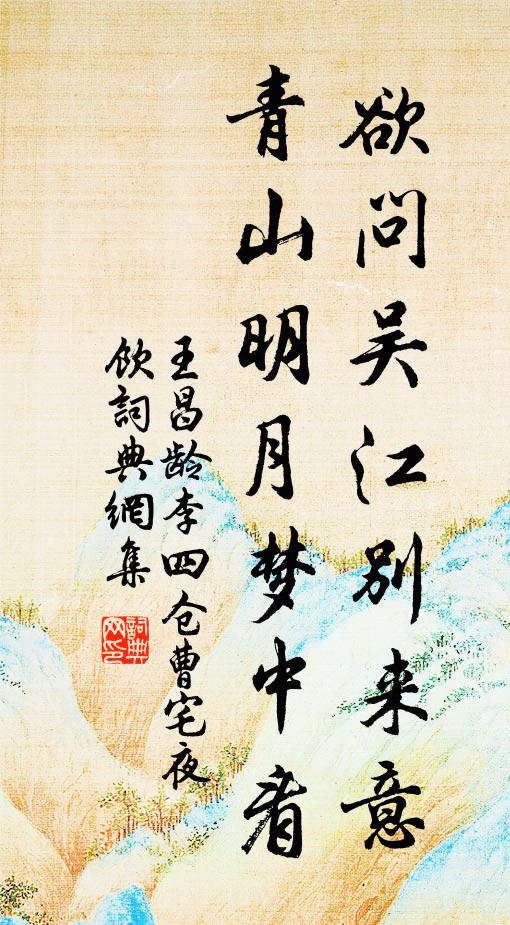 欲问吴江别来意
青山明月梦中看
王昌龄李四仓曹宅夜
饮詞典網集
詞典
网印